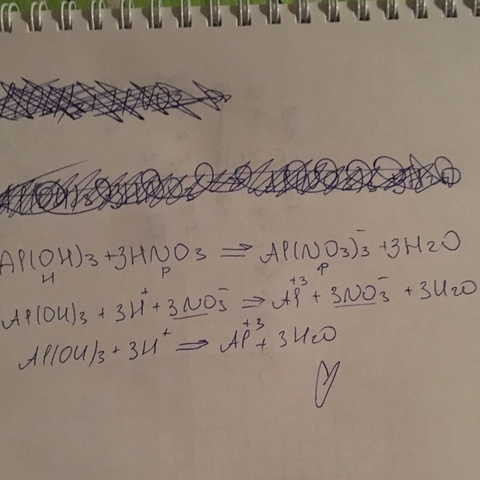 Al(OH)3 + 3HNO3 => Al(NO3)3⁻ + 3H2O
н р р
Al(OH)3 + 3H⁺ + 3NO3⁻ => Al⁺³ + 3NO3⁻ + 3H2O
Al(OH)3 + 3H⁺ => Al⁺³ + 3H2O